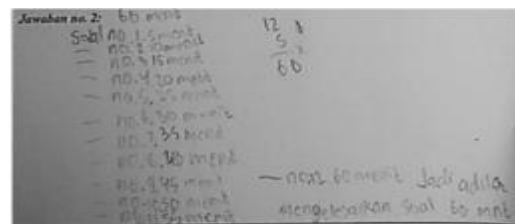 Jawaban no. 2: 60 menit
Soal no. 1. 5 menit
— no. 2 10 menit
— no. 3 15 menit
— no. 4 20 menit
— no. 5. 25 menit
— no. 6. 30 menit
— no. 7. 35 menit
— no. 8. 40 menit
— no. 9. 45 menit
— no. 10 50 menit
— menit
12
5 x
60
— no 12 60 menit Jadi adita
mengelesaikan Soal 60 mnt